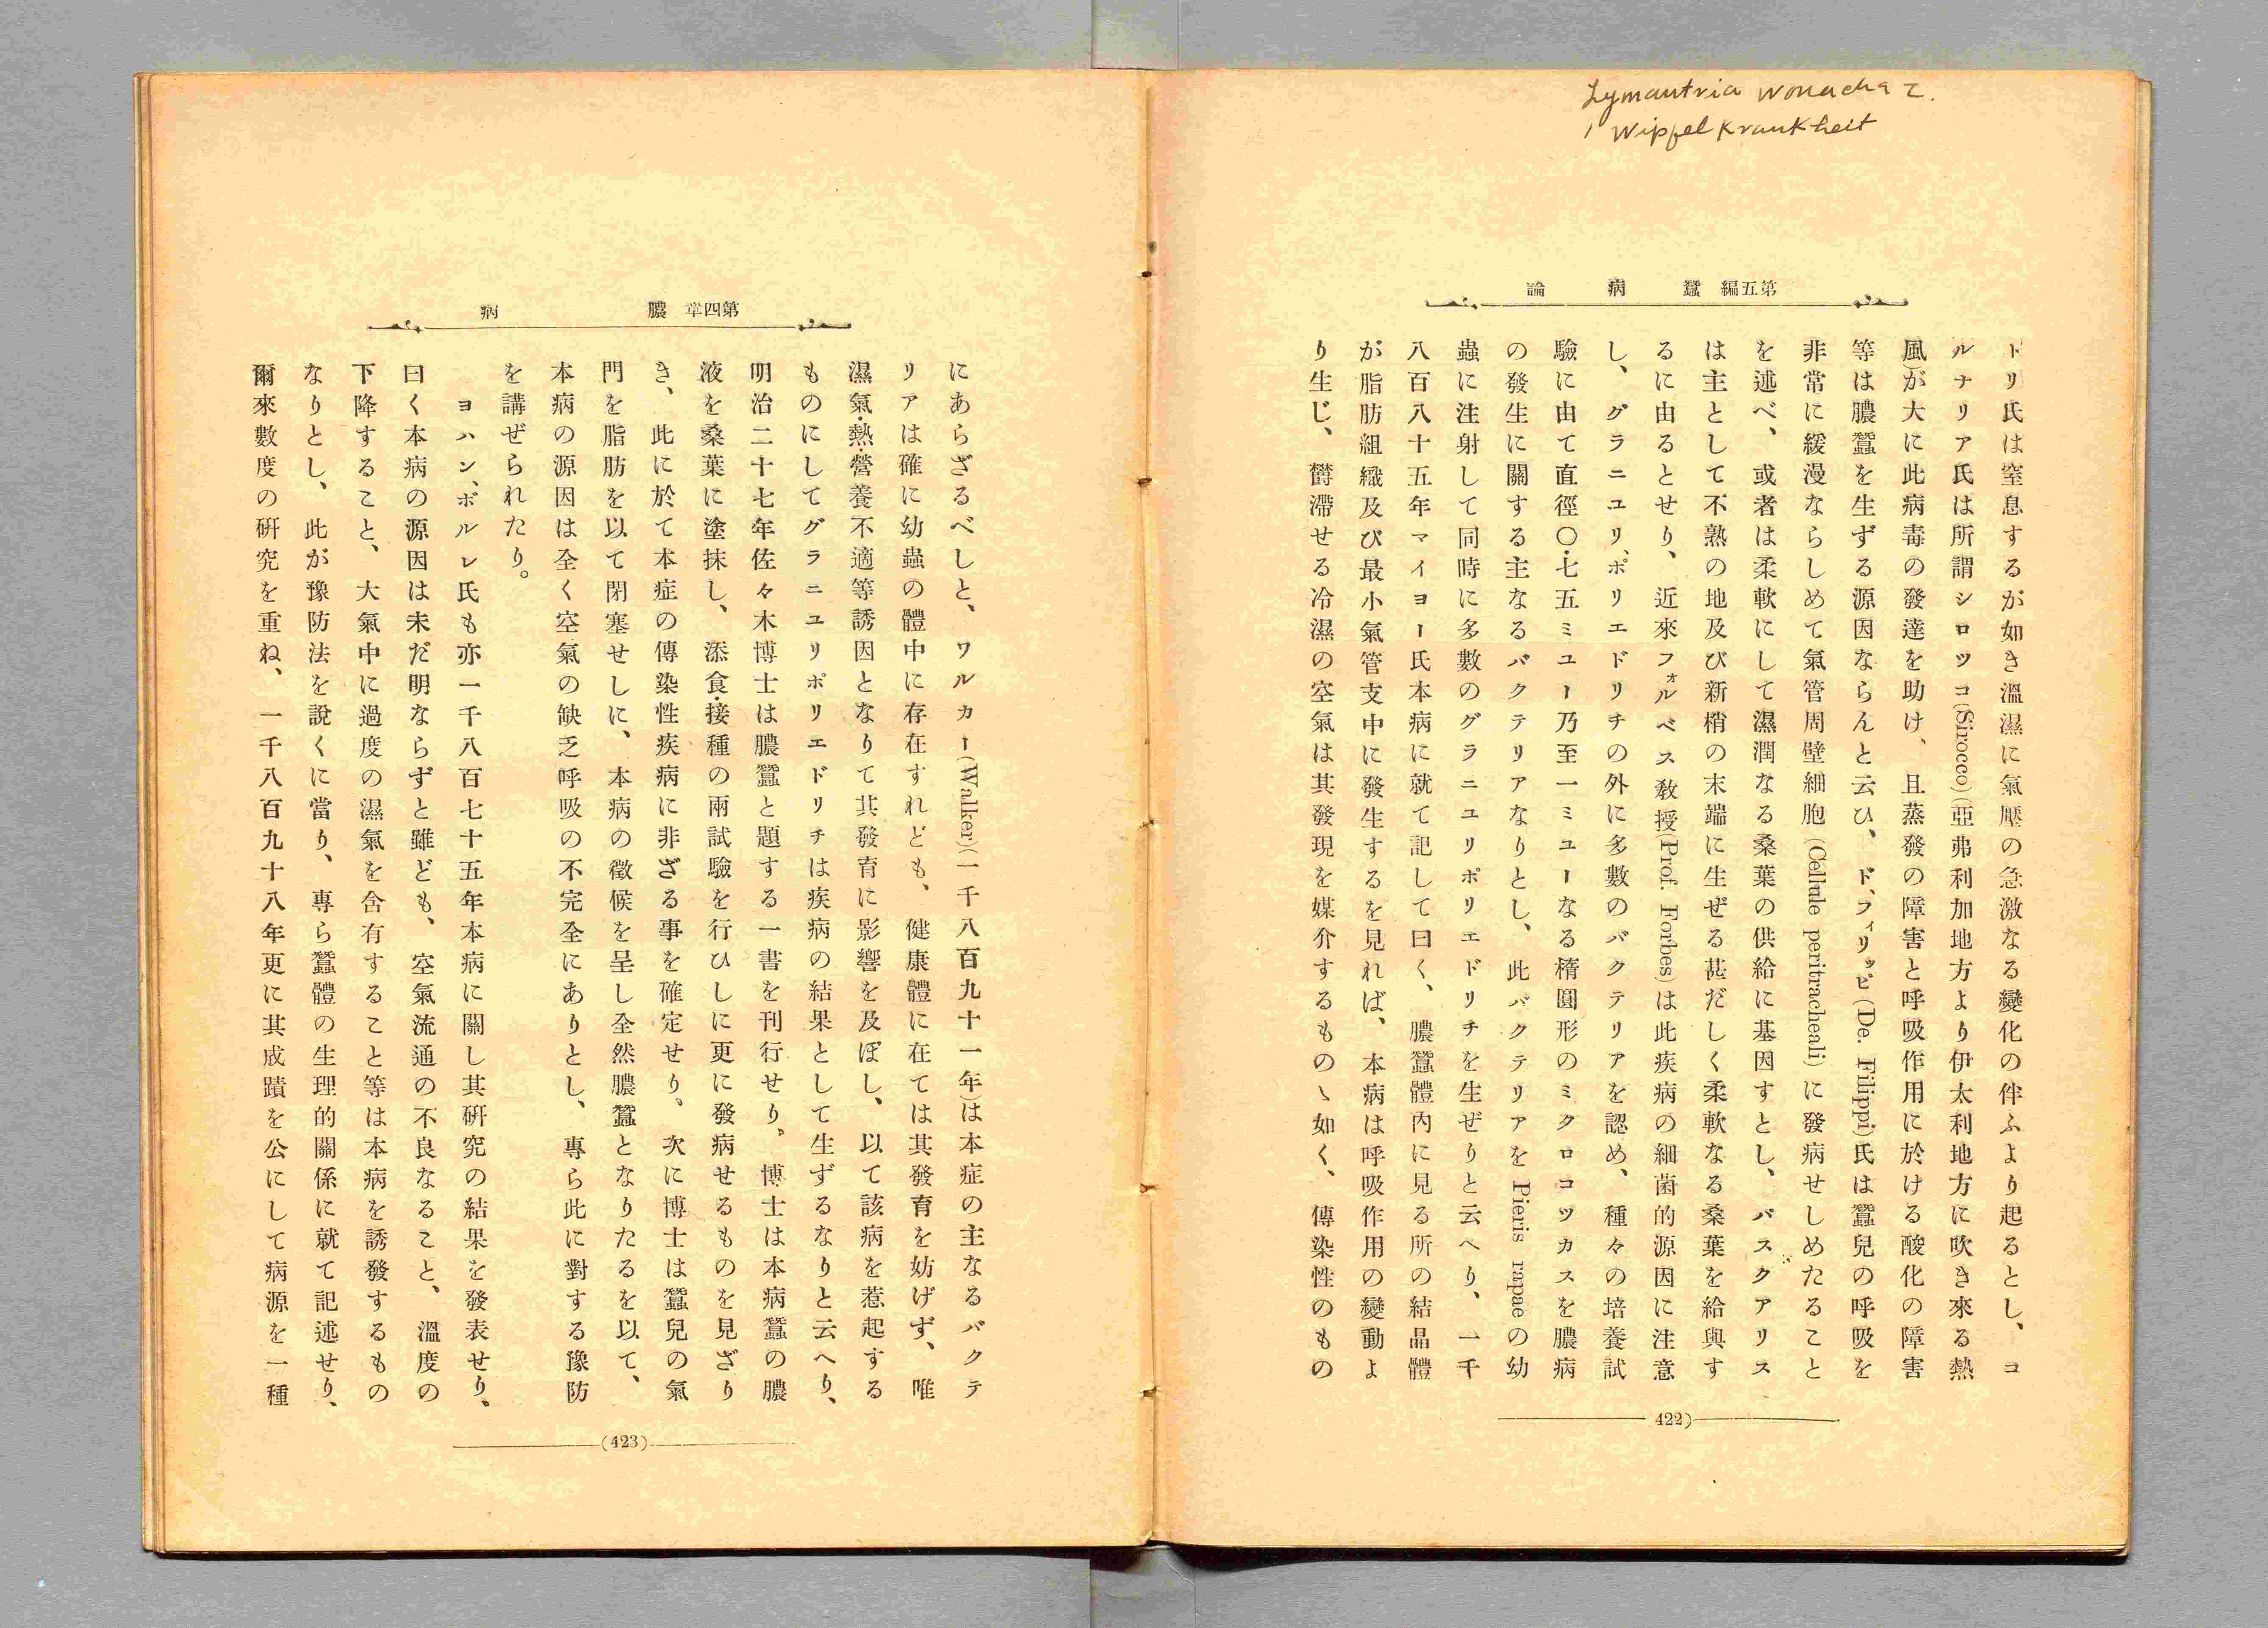 Lymantria monacha L.
Wipfel Krankheit
第五編 蠶病論
トリ氏は窒息するが如き溫濕に氣壓の急激なる變化の伴ふより起るとし、コ
ルナリア氏は所謂シロツコ(Sirocco)(亞弗利加地方より伊太利地方に吹き來る熱
風)が大に此病毒の發達を助け、且蒸發の障害と呼吸作用に於ける酸化の障害
等は膿蠶を生ずる源因ならんと云ひ、ド、フィリッピ(De. Filippi)氏は蠶兒の呼吸を
非常に緩漫ならしめて氣管周壁細胞(Cellule peritracheali)に發病せしめたること
を述べ、或者は柔軟にして濕潤なる桑葉の供給に基因すとし、バスクアリス
は主として不熟の地及び新梢の末端に生ぜる甚だしく柔軟なる桑葉を給與す
るに由るとせり、近來フォルベス敎授(Prof. Forbes)は此疾病の細菌的源因に注意
し、グラニユリ、ポリエドリチの外に多數のバクテリアを認め、種々の培養試
驗に由て直徑〇・七五ミユー乃至一ミユーなる橢圓形のミクロコツカスを膿病
の發生に關する主なるバクテリアなりとし、此バクテリアをPieris rapaeの幼
蟲に注射して同時に多數のグラニユリポリエドリチを生ぜりと云へり、一千
八百八十五年マイヨー氏本病に就て記して曰く、膿蠶體內に見る所の結晶體
が脂肪組織及び最小氣管支中に發生するを見れば、本病は呼吸作用の變動よ
り生じ、欝滯せる冷濕の空氣は其發現を媒介するものゝ如く、傳染性のもの
422)
第四章 膿病
にあらざるべしと、ワルカー(Walker)(一千八百九十一年)は本症の主なるバクテ
リアは確に幼蟲の體中に存在すれども、健康體に在ては其發育を妨げず、唯
濕氣・熱・營養不適等誘因となりて其發育に影響を及ぼし、以て該病を惹起する
ものにしてグラニユリポリエドリチは疾病の結果として生ずるなりと云へり、
明治二十七年佐々木博士は膿蠶と題する一書を刊行せり。博士は本病蠶の膿
液を桑葉に塗抹し、添食・接種の兩試驗を行ひしに更に發病せるものを見ざり
き、此に於て本症の傳染性疾病に非ざる事を確定せり、次に博士は蠶兒の氣
門を脂肪を以て閉塞せしに、本病の徵候を呈し全然膿蠶となりたるを以て、
本病の源因は全く空氣の缺乏呼吸の不完全にありとし、專ら此に對する豫防
を講ぜられたり。
ヨハン、ボルレ氏も亦一千八百七十五年本病に關し其硏究の結果を發表せり、
曰く本病の源因は未だ明ならずと雖ども、空氣流通の不良なること、溫度の
下降すること、大氣中に過度の濕氣を含有すること等は本病を誘發するもの
なりとし、此が豫防法を說くに當り、專ら蠶體の生理的關係に就て記述せり、
爾來數度の硏究を重ね、一千八百九十八年更に其成蹟を公にして病源を一種
(423)